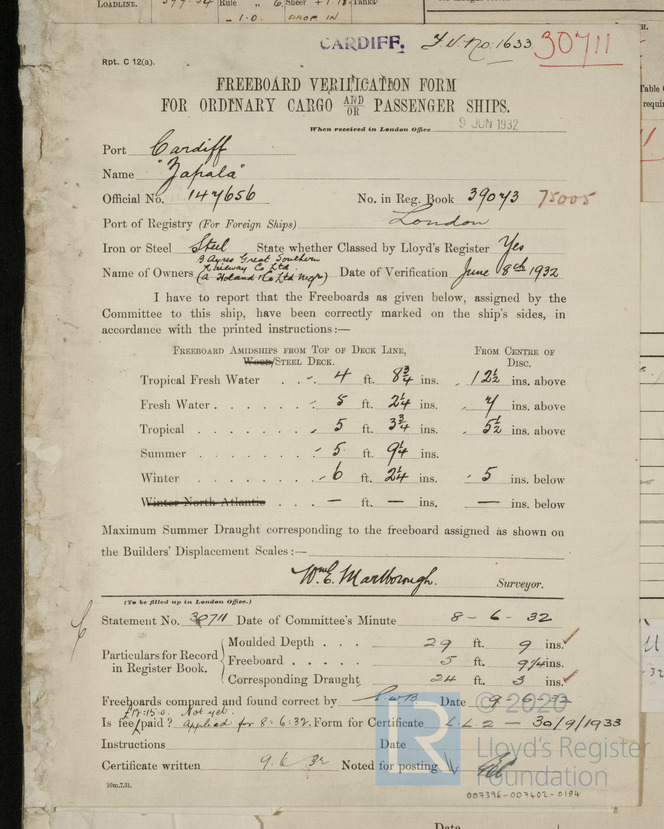 LOADLINE. Rule " 6 Sheer
- 1.0. DROP IN
CARDIFF. F.V. No. 1633. 30711
Rpt. C 12(a).
FREEBOARD VERIFICATION FORM
FOR ORDINARY CARGO AND/OR PASSENGER SHIPS.
When received in London Office 9 JUN 1932
Port Cardiff
Name "Zapala"
Official No. 147656 No. in Reg. Book 39073 75005
Port of Registry (For Foreign Ships) London
Iron or Steel Steel State whether Classed by Lloyd's Register Yes
B Ayres Great Southern
Railway Co Ltd.
Name of Owners (A Holland & Co Ltd Mgrs) Date of Verification June 8th 1932
I have to report that the Freeboards as given below, assigned by the
Committee to this ship, have been correctly marked on the ship's sides, in
accordance with the printed instructions:—
Freeboard Amidships from Top of Deck Line, From Centre of
Wood/Steel Deck. Disc.
Tropical Fresh Water . . 4 ft. 8¾ ins. 12½ ins. above
Fresh Water . . . . . . . 5 ft. 2¼ ins. 7 ins. above
Tropical . . . . . . . 5 ft. 3¾ ins. 5½ ins. above
Summer . . . . . . . 5 ft. 9¼ ins.
Winter . . . . . . . 6 ft. 2¼ ins. 5 ins. below
Winter North Atlantic . . . — ft. — ins. — ins. below
Maximum Summer Draught corresponding to the freeboard assigned as shown on
the Builders' Displacement Scales:—
Wm. E. Marlborough. Surveyor.
(To be filled up in London Office.)
Statement No. 30711 Date of Committee's Minute 8 - 6 - 32
Particulars for Record in Register Book.
Moulded Depth . . . 29 ft. 9 ins.
Freeboard . . . . . 5 ft. 9¼ ins.
Corresponding Draught 24 ft. 3 ins.
Freeboards compared and found correct by Date 9-6-32
£17:15:0. Not yet.
Is fee paid? Applied for 8.6.32. Form for Certificate L.L.2 — 30/9/1933
Instructions Date
Certificate written 9.6.32 Noted for posting
10m,7,31.
007396-007402-0184
© 2020
Lloyd's Register
Foundation
Date